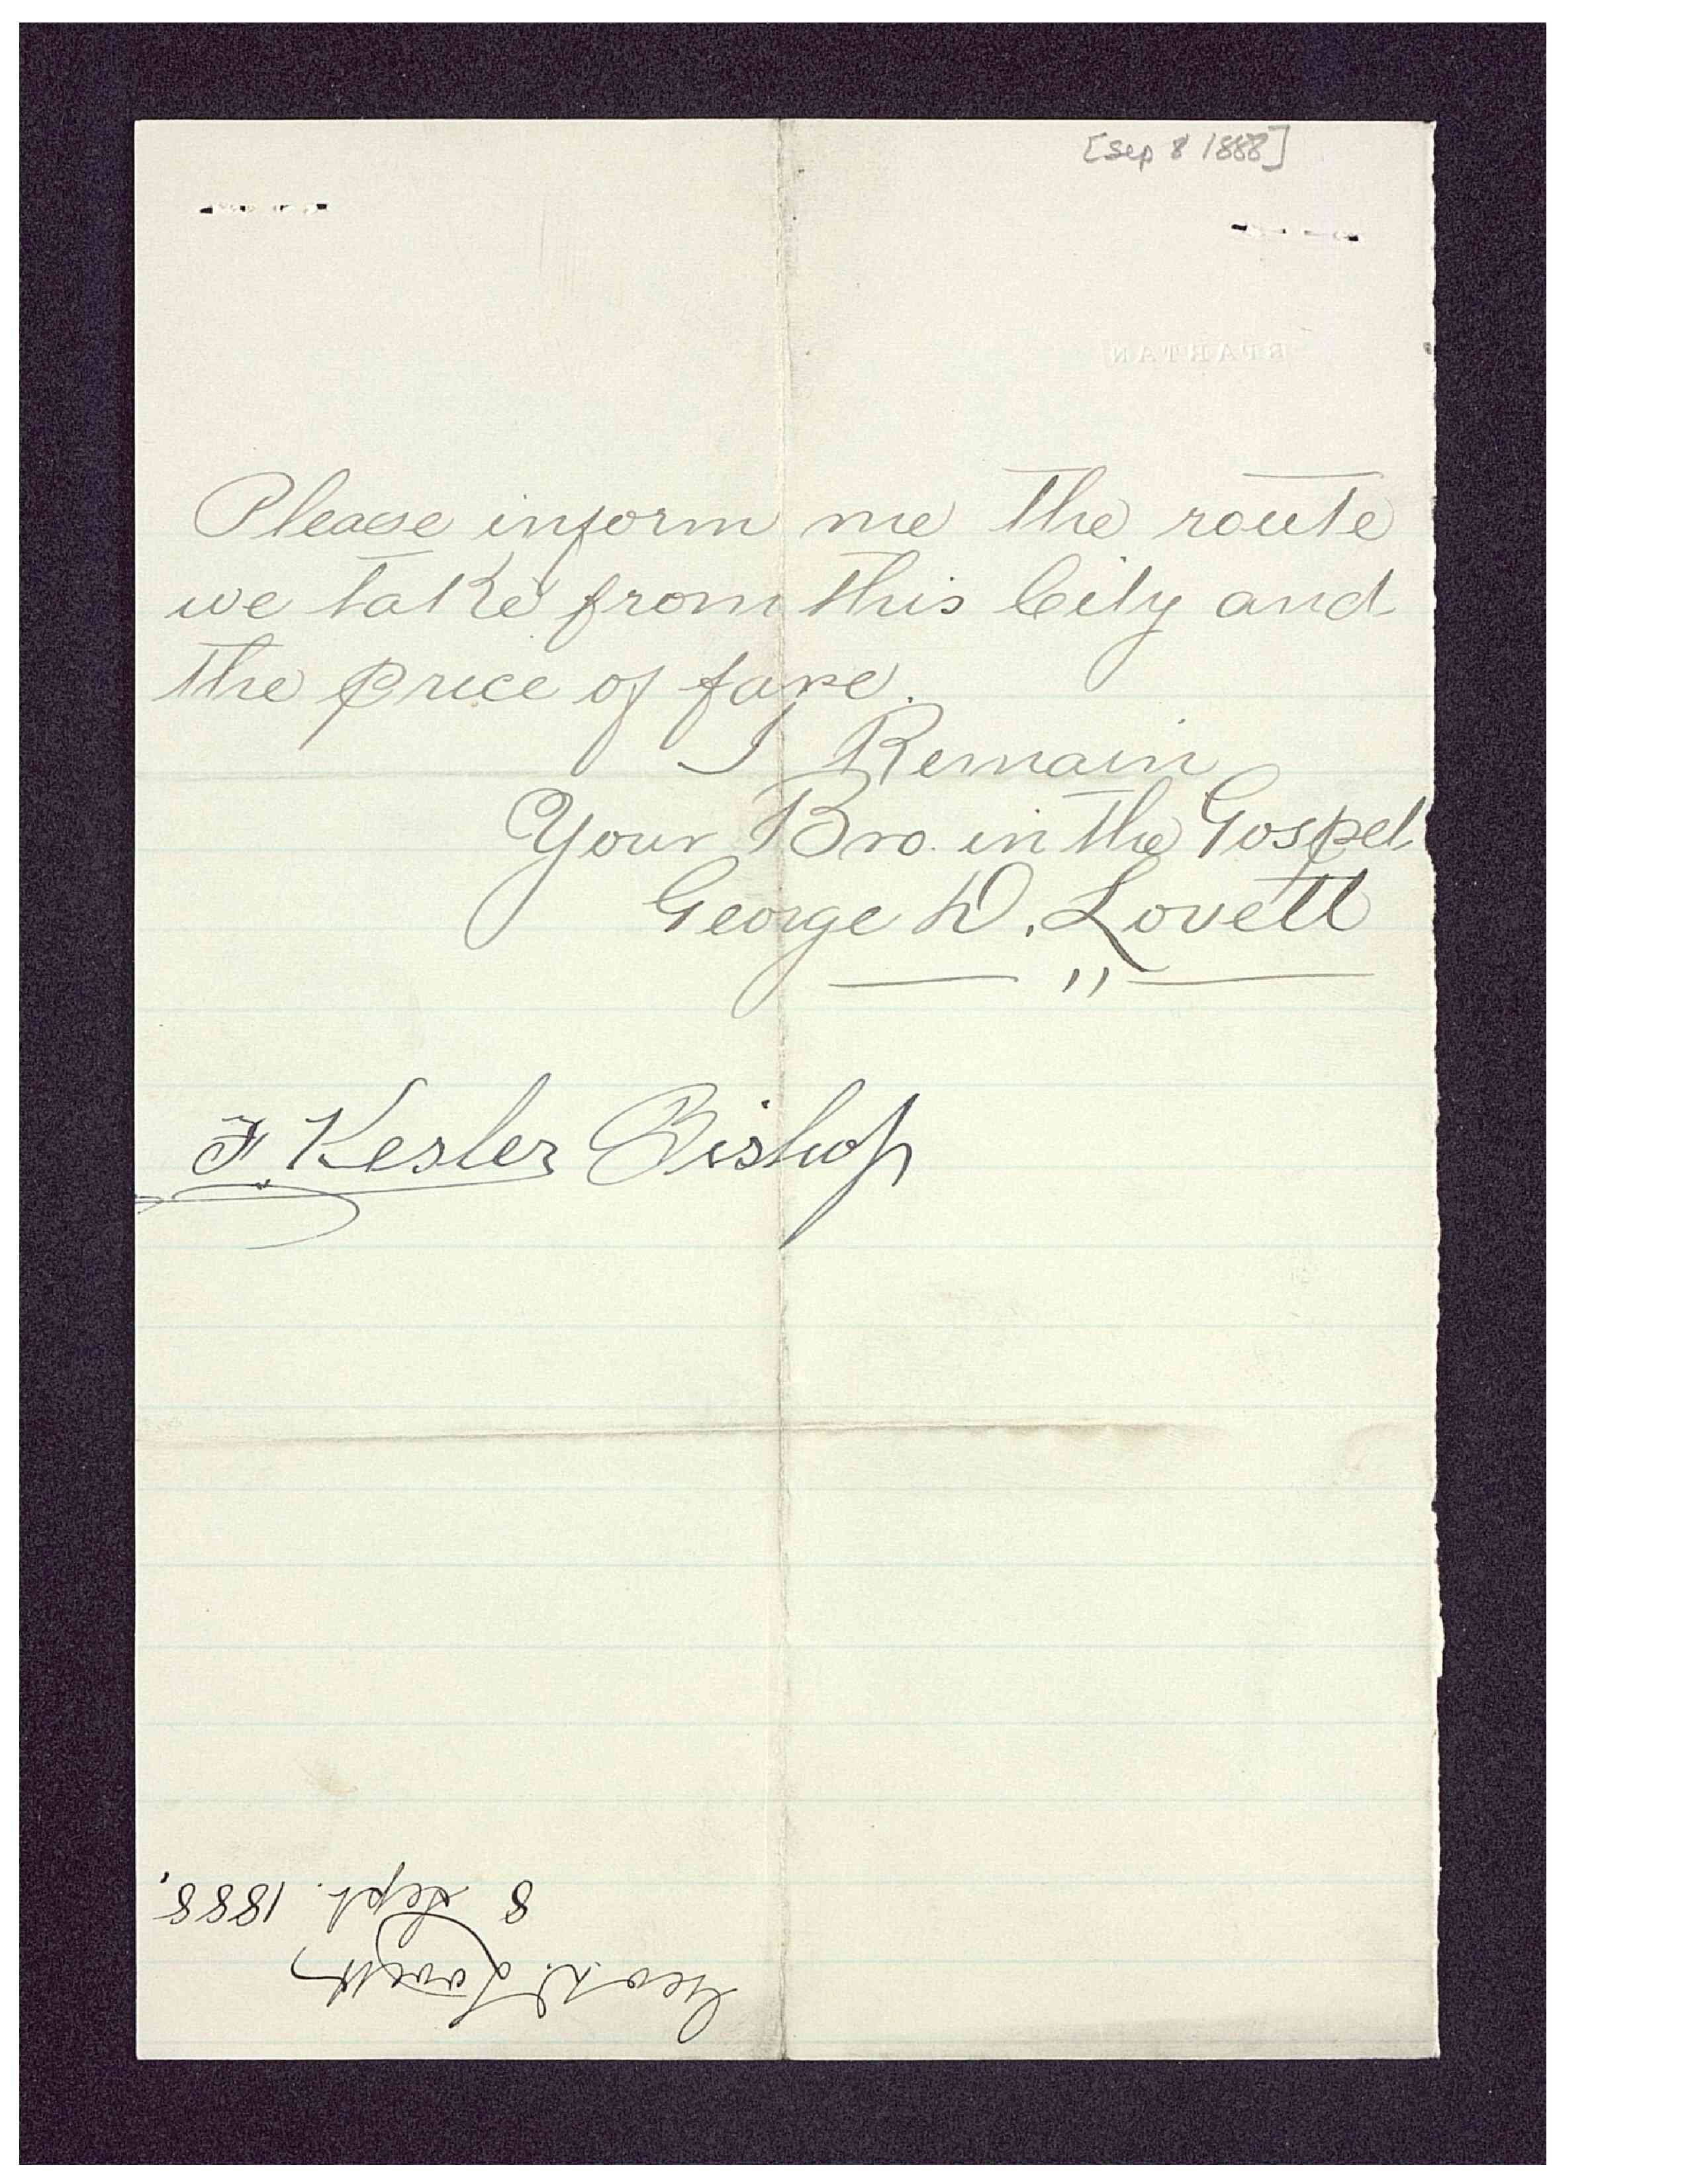 [Sep 8 1888]
SPARTAN
Please inform me the route
we take from this City and
the price of fare.
I Remain
Your Bro. in the Gospel
George D. Lovett
F Kesler Bishop
Geo D. Lovett
8 Sept. 1888.